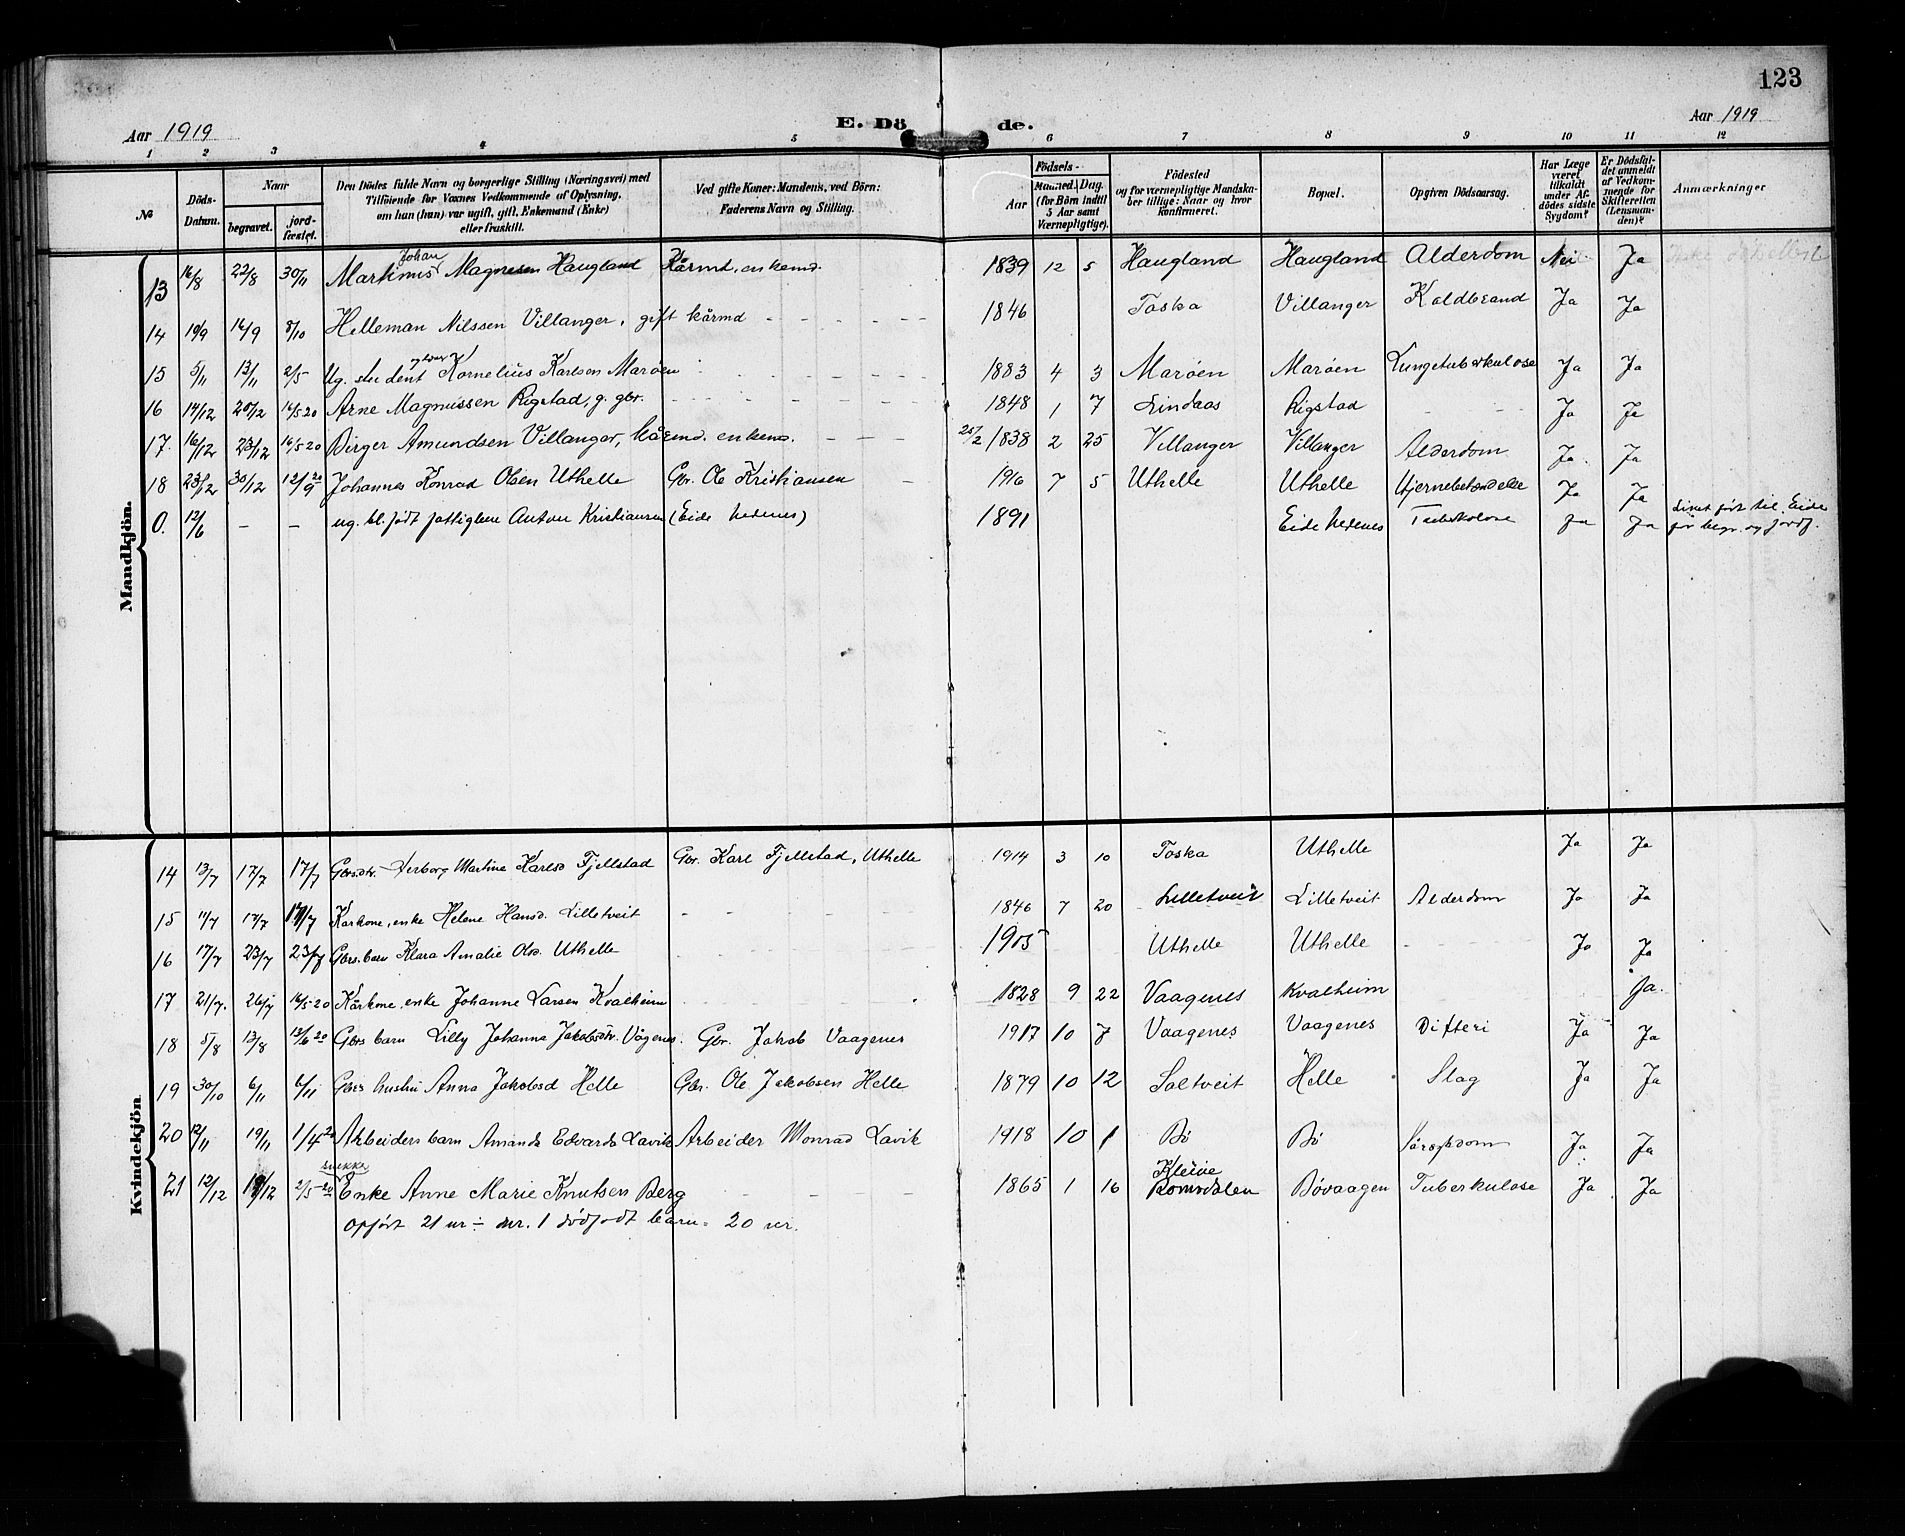 123
Aar 1919 E. Dö de. Aar 1919
1 2 3 4 5 6 7 8 9 10 11 12
№ Döds-Datum. Naar begravet. jord-fæstet. Den Dödes fulde Navn og borgerlige Stilling (Næringsvei) med Tilföiende for Voxnes Vedkommende af Oplysning, om han (hun) var ugift, gift, Enkemand (Enke) eller fraskilt. Ved gifte Koner: Mandens, ved Börn: Faderens Navn og Stilling. Födsels- Aar Maaned. Dag. (for Börn indtil 5 Aar samt Værnepligtige). Födested og for værnepligtige Mandskaber tillige: Naar og hvor konfirmeret. Bopæl. Opgiven Dödsaarsag. Har Læge været tilkaldt under Afdödes sidste Sygdom? Er Dödsfaldet anmeldt af Vedkommende for Skifteretten (Lensmanden)? Anmærkninger
Mandkjön.
Johan
13 16/8 22/8 30/11 Martinus Magnesen Haugland Kårmd. enkemd. 1839 12 5 Haugland Haugland Alderdom Nei Ja
14 10/9 16/9 8/10 Helleman Nilssen Villanger, gift kårmd - - - - - 1846 Toska Villanger Koldbrand Ja Ja
15 5/11 13/11 2/5 Ug. student Kornelius Karlsen Marøen - - - - 1883 4 3 Marøen Marøen Lungetuberkulose Ja Ja
16 14/12 20/12 16/5 20 Arne Magnussen Rigstad, g. gbr. - - - - 1848 1 7 Lindaas Rigstad - - Ja Ja
17. 16/12 23/12 16/5 20 Birger Amundsen Villanger, kårmd. enkemd. - - - 25/2 1838 2 25 Villanger Villanger Alderdom Ja Ja
18 23/12 30/12 12/9 20 Johannes Konrad Olsen Uthelle Gbr. Ole Kristiansen - 1916 7 5 Uthelle Uthelle Hjernebetændelse Ja Ja
0. 12/6 - - ug. bl. født fattiglem Anton Kristiansen (Eide Nedenes) 1891 Eide Nedenes Tuberkolose Ja Ja Liket ført til Eide for begr. og jordf.
Kvindekjön.
14 13/7 17/7 17/7 Gbrs.dtr. Herborg Martine Karlsd Fjellstad Gbr. Karl Fjellstad, Uthelle 1914 3 10 Toska Uthelle Ja Ja
15 11/7 17/7 17/7 Kårkone, enke Helene Hansd. Lilletveit - - - - 1846 7 20 Lilletveit Lilletveit Alderdom Ja Ja
16 17/7 23/7 23/7 Gbrs. barn Klara Amalie Olsd. Uthelle - - - - 1905 Uthelle Uthelle - - - Ja Ja
17 21/7. 26/7 16/5 20 Kårkone, enke Johanne Larsen Kvalheim - - - - 1828 9 22 Vaagenes Kvalheim Ja.
18 5/8 13/8 13/6 20 Gbrs barn Lilly Johanna Jakobsdtr. Vågenes. Gbr. Jakob Vaagenes 1917 10 7 Vaagenes Vaagenes Difteri Ja Ja
19 30/10 6/11 6/11 Gbrs hustru Anna Jakobsd Helle Gbr. Ole Jakobsen Helle 1879 10 12 Soltveit Helle Slag Ja Ja
20 12/11 19/11 1/4 20 Arbeiders barn Amanda Edvarda Lavik Arbeider Monrad Lavik 1918 10 1 Bö Bö Ja Ja
Kleive
21 12/12 19/12 2/5 20 Enke Anne Marie Knutsen Berg - - - 1865 1 16 Romsdalen Bövaagen Tuberkulose Ja Ja
Opført 21 nr ÷ nr. 1 dödfødt barn = 20 nr.